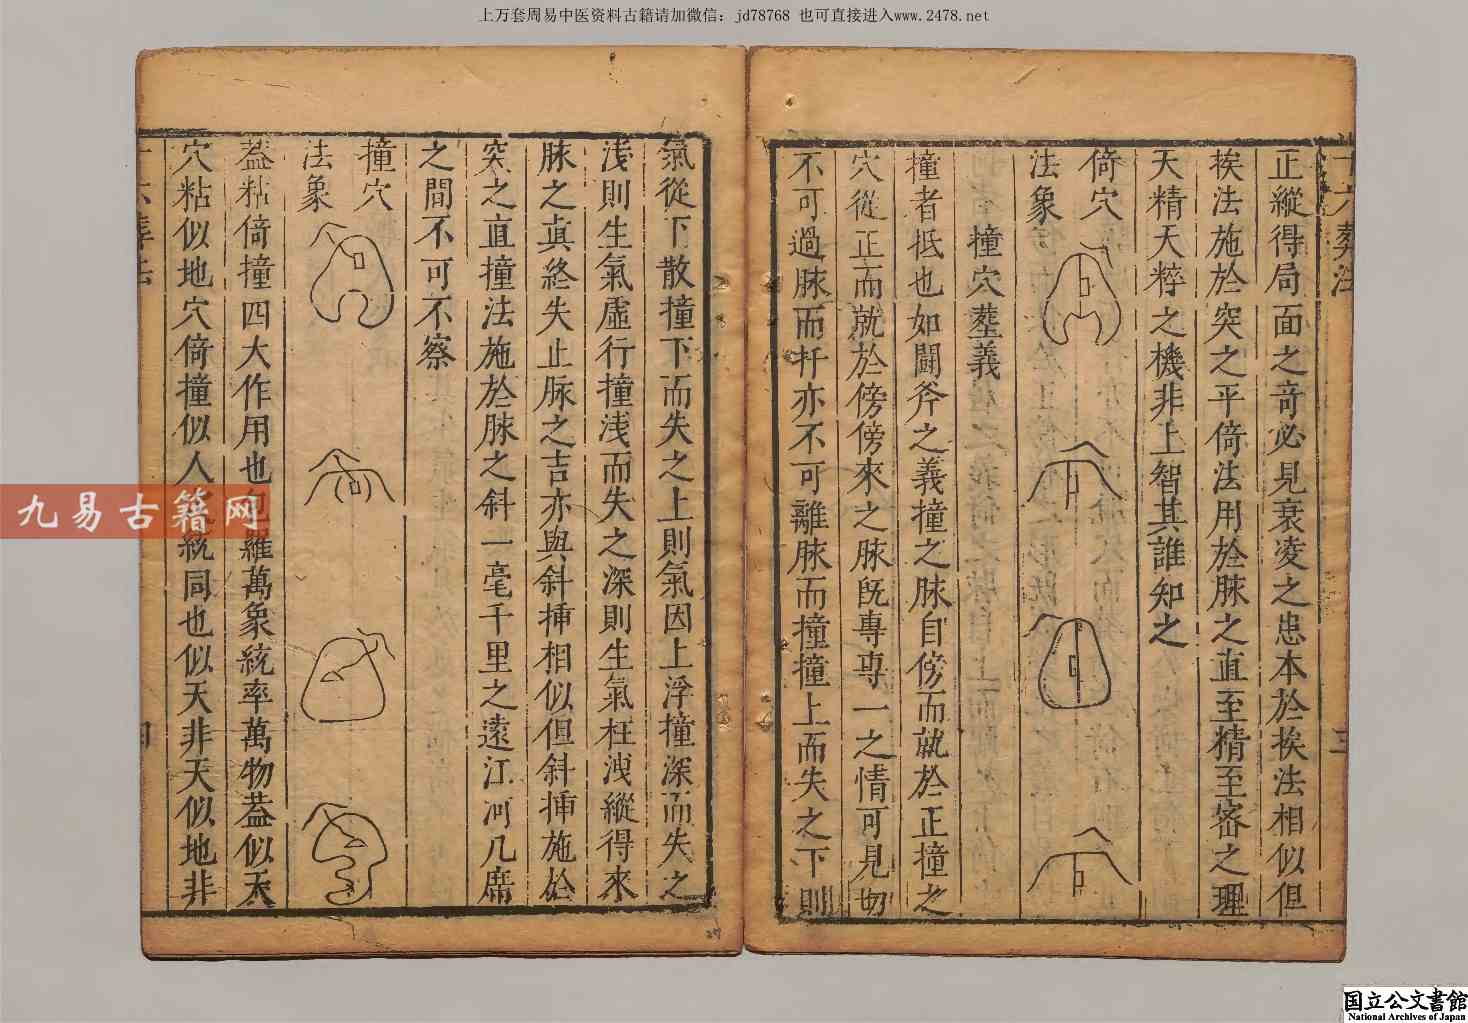 上万套周易中医资料古籍请加微信：jd78768 也可直接进入www.2478.net
十六葬法
三
正縱得局面之奇必見衰凌之患本於挨法相似但
挨法施於突之平倚法用於脉之直至精至密之理
天精天粹之機非上智其誰知之
倚穴
法象
撞穴葬義
撞者抵也如鬪斧之義撞之脉自傍而就於正撞之
穴從正而就於傍傍來之脉旣專專一之情可見切
不可過脉而扦亦不可離脉而撞撞上而失之下則
氣從下散撞下而失之上則氣因上浮撞深而失之
淺則生氣虛行撞淺而失之深則生氣枉洩縱得來
脉之眞終失止脉之吉亦與斜揷相似但斜揷施於
突之直撞法施於脉之斜一毫千里之遠江河几席
之間不可不察
撞穴
法象
葢粘倚撞四大作用也包羅萬象統率萬物葢似天
穴粘似地穴倚撞似人穴統同也似天非天似地非
十六葬法
四
九易古籍网
国立公文書館
National Archives of Japan